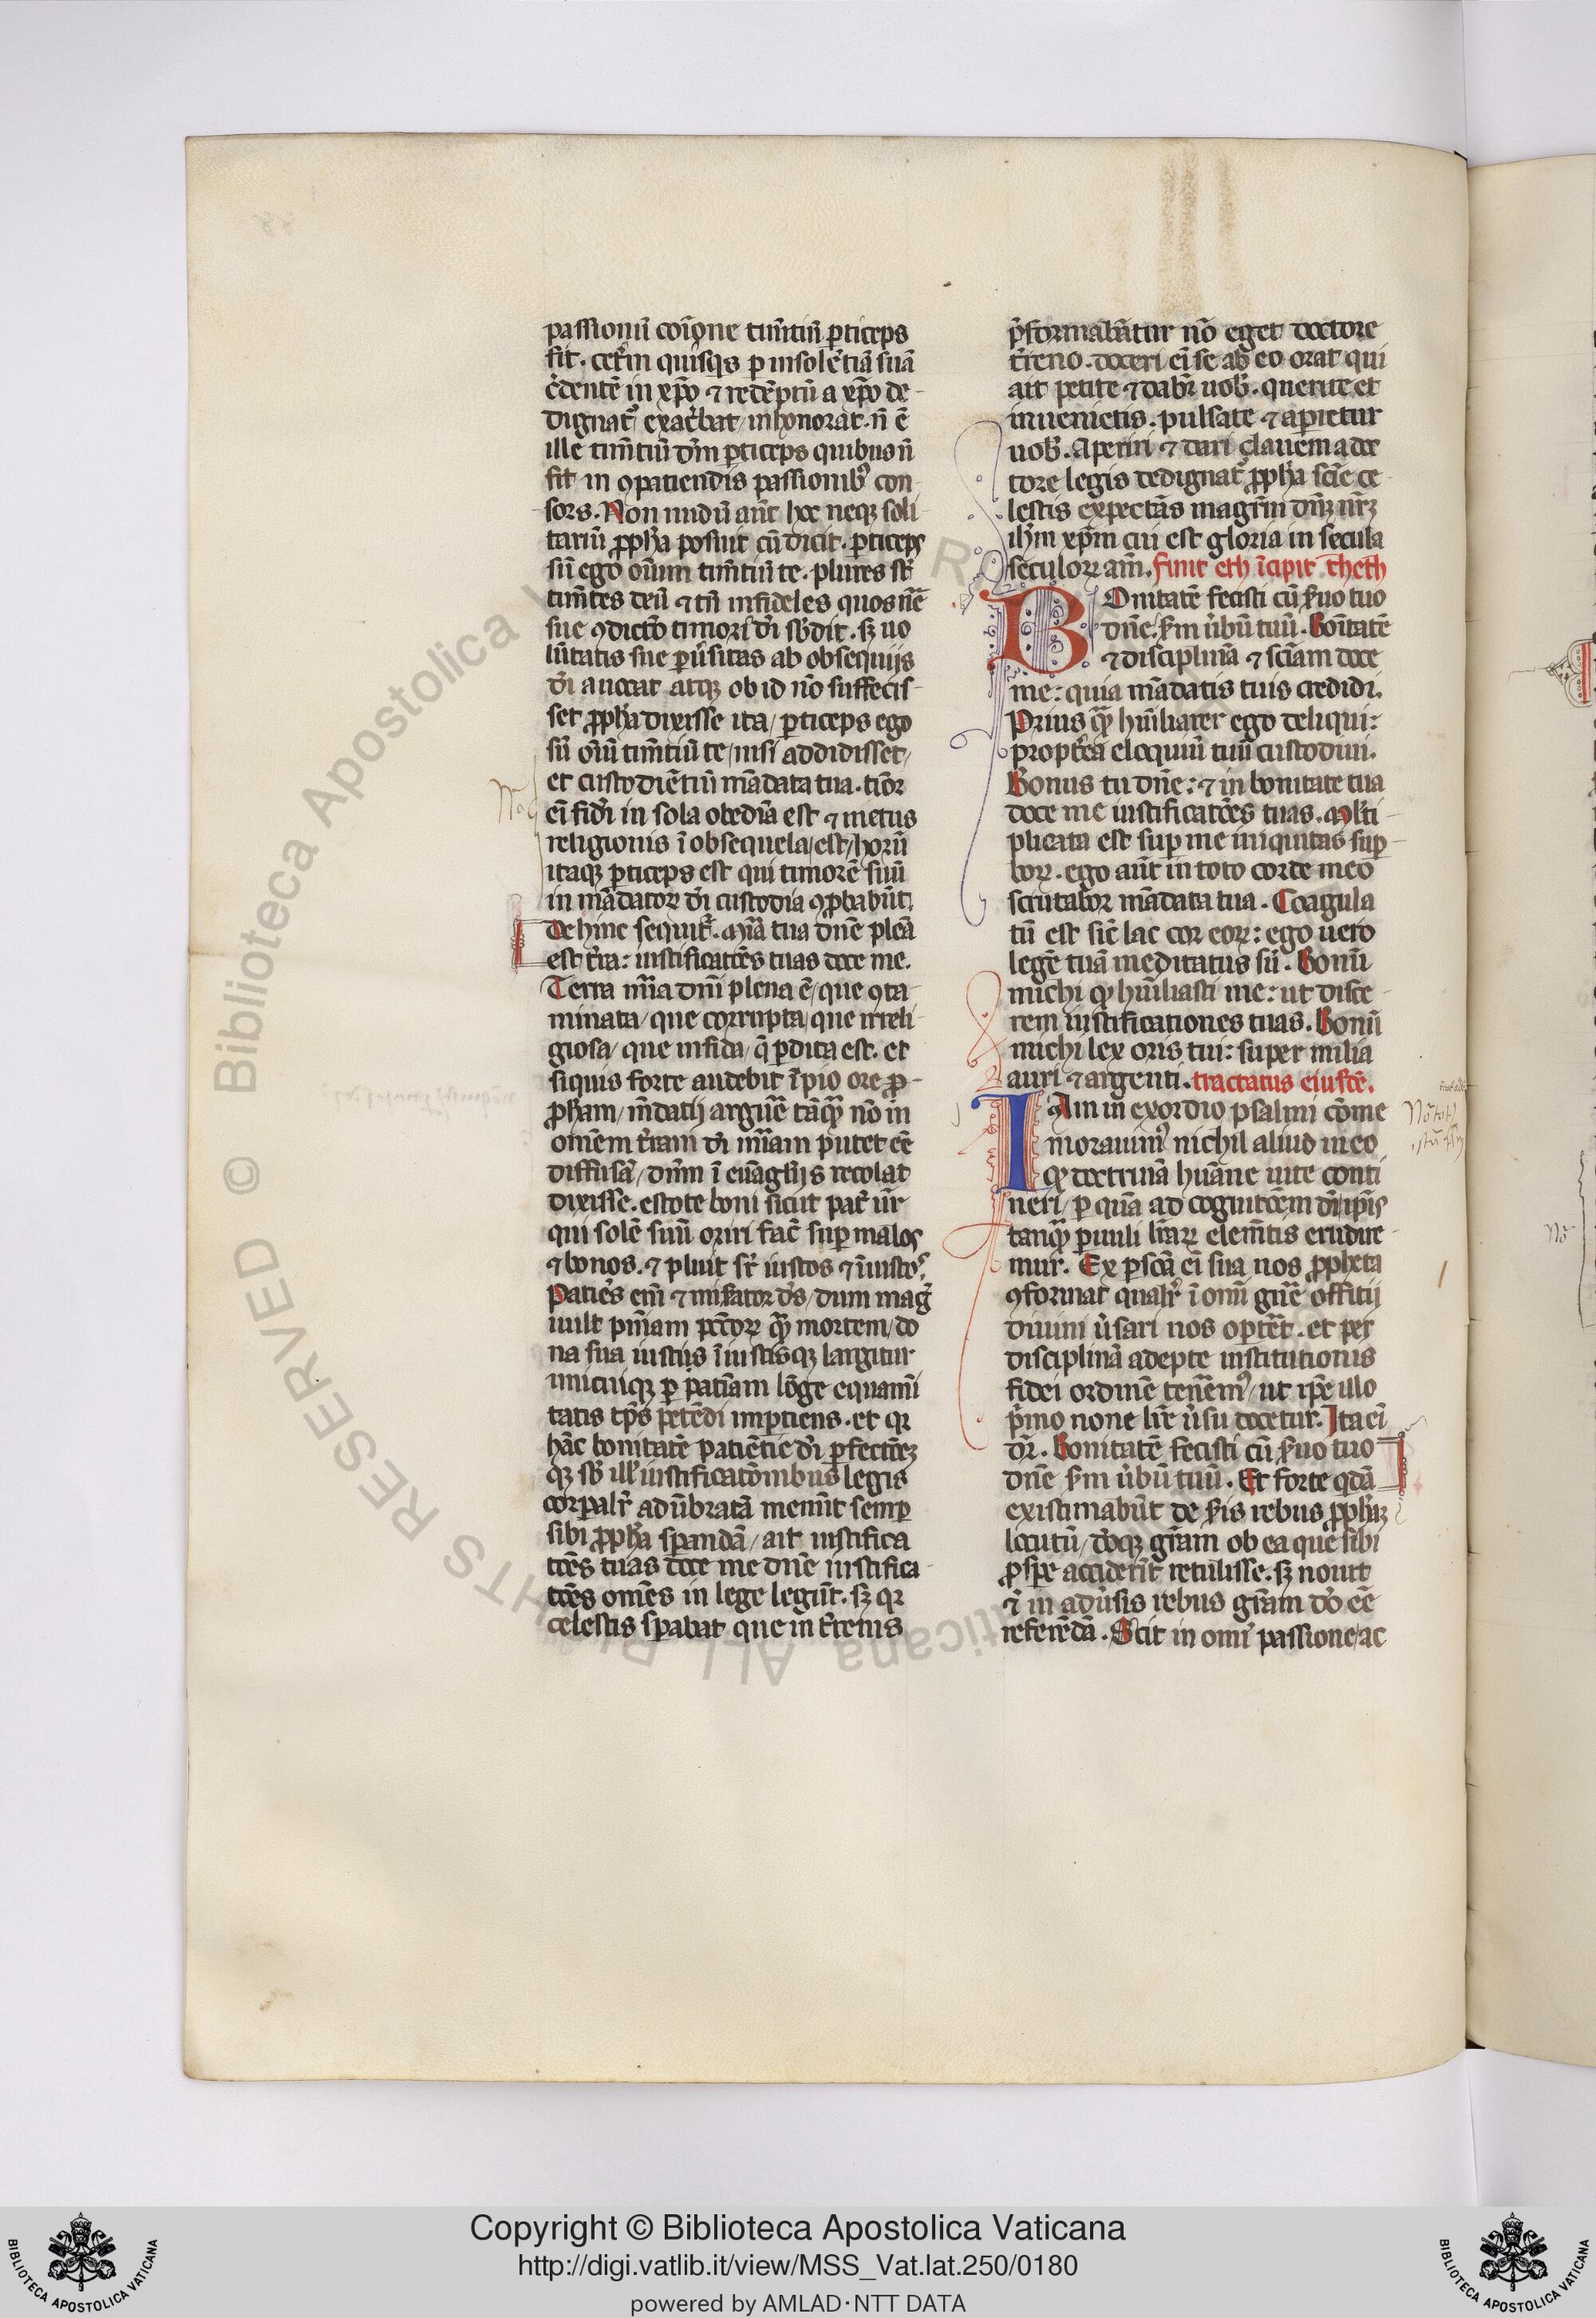 passionū coĩone timẽtiũ ꝑticeps
fit. cet̾m quisqs ꝑ insolẽtiã suã
c̾dentẽ in xp̃o ⁊ redẽptũ a xp̃o de-
dignat᷑ exac̾bat inhonorat. ñ ẽ
ille timẽtiũ dñm ꝑticeps quibus ñ
fit in ꝯpatiendis passionibꝰ con-
sors. Non nudũ aũt hoc neqꝫ soli-
tariũ ꝓph̃a posuit cũ dicit. ꝑticeps
sũ ego oĩum timẽtiũ te. plures st̃
timẽtes deũ ⁊ tñ infideles quos
sue ꝯdictõ timori dĩ sb̾dit. sꝫ uo
lũtatis sue ꝑũsitas ab obsequijs
dĩ auocat. atqꝫ ob id nõ suffecis-
set ꝓph̃a dixisse ita ꝑticeps ego
sũ oĩũ timẽtiũ te nisi addidisset
et custodiẽtiũ mãdata tua. timor
eĩ fidĩ in sola obediã est ⁊ metus
religionis ĩ obsequela est horũ
itaqꝫ ꝑticeps est qui timorẽ suũ
in mãdatoꝝ dĩ custodia ꝯꝓbabũt.
Dehinc sequit᷑. mĩa tua dñe plẽa
est t̾ra: iustificatões tuas doce me.
Terra mĩa dñi plena ẽ que ꝯta-
minata que corrupta que irreli-
giosa que infida q̃ ꝑdita est. et
siquis forte audebit ĩpio ore ꝓ-
ꝓh̃am mẽdatij arguẽ tãqꝫ nõ in
omẽm t̾ram dĩ mĩam putet eẽ
diffusã dñm ĩ euãglijs recolat
dixisse. estote boni sicut pat̾ ũr
qui solẽ suũ oriri fac̃ suꝑ malos
⁊ bonos. ⁊ pluit sr̃ iustos ⁊ ĩiustos.
Patiẽs em̃ ⁊ mis̾ator dẽs dum mag̾
uult pñiam pctõꝝ qꝫ mortem do
na sua iustis ĩiustisqꝫ largitur
unicuiqꝫ ꝑ patiẽtiam lõge equanĩ
tatis tp̃s petẽdi imꝑtiens. et qꝛ
hãc bonitatẽ patiẽtie dĩ ꝑfectiõeꝫ
qꝫ sb̾ ill̾ iustificatõnibus legis
corꝑalr̃ adũbratã meminit semꝑ
sibi ꝓph̃a sꝑandã ait iustifica
tões tuas doce me dñe iustifica-
tões omẽs in lege legũt. sꝫ qꝛ
celestis sꝑabat que in t̾renis
p̾formabãtur nõ eget doctore
t̾reno. doceri eĩ se ab eo orat qui
ait petite ⁊ dabit̾ uob̾. querite et
inuenietis. pulsate ⁊ aperietur
uob̾. Aperiri ⁊ dari clauem a doc
tore legis dedignat᷑ ꝓph̃a scĩe ce-
lestis expectãs magr̃m dñꝫ nr̃ꝫ
ih̃m xp̃m cui est gloria in secula
seculoꝝ am̃. finit eth ĩcipit theth
BOnitatẽ fecisti cũ s̾uo tuo
dñe. s̾m ũbũ tuũ. Boñitatẽ
⁊ disciplinã ⁊ sciam doce
me: quia mãdatis tuis credidi.
Prius qꝫ hũiliarer ego deliqui:
propt̾ea eloquiũ tuũ custodiui.
Bonus tu dñe: ⁊ in bonitate tua
doce me iustificatões tuas. Ml̾ti-
plicata est suꝑ me iniquitas suꝑ-
boꝝ. ego aũt in toto corde meo
scrutabor mãdata tua. Coagula
tũ est sic̃ lac cor eoꝝ: ego uero
legẽ tuã meditatus sũ. Bonũ
michi qꝫ hũiliasti me: ut disce-
rem iustificationes tuas. Bonũ
michi lex oris tui: super milia
auri ⁊ argenti. tractatus eiusdẽ.
IAm in exordio psalmi cõme
morauimꝰ nichil aliud in eo
qꝫ doctrinã hũane uite conti
neri ꝑ quã ad cognitõem dĩ ip̃is
tanqꝫ paruuli lr̃aꝝ elemẽtis erudire-
mur. Ex ꝑsõa eĩ sua nos ꝓpheta
ꝯformat qualr̃ ĩ omĩ gñẽ offitij
diuini ũsari nos oportet. et per
disciplinã adepte institutionis
fidei ordinẽ tenẽemꝰ ut ip̃e illo
p̾mo none lr̃e ũsu docetur. Ita eĩ
dr̃. Bonitatẽ fecisti cũ s̾uo tuo
dñe s̾m ũbũ tuũ. Et forte qdã
existimabũt de s̾is rebus ꝓph̃ꝫ
locutũ dõqꝫ gr̃am ob ea que sibi
ꝓspe acciderĩt retulisse. sꝫ nouit
⁊ in adũsis rebus gr̃am dõ eẽ
referẽdã. Scit in omĩ passione ac
Copyright © Biblioteca Apostolica Vaticana
http://digi.vatlib.it/view/MSS_Vat.lat.250/0180
powered by AMLAD·NTT DATA